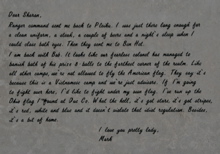 Dear Sharon,
Ranger command sent me back to Pleiku. I was just there long enough for
a clean uniform, a steak, a couple of beers and a night's sleep when I
could close both eyes. Then they sent me to Ben Het.
I am back with Bob. It looks like our fearless colonel has managed to
banish both of his pains & balls to the farthest corner of the realm. Like
all other camps, we're not allowed to fly the American flag. They say it's
because this is a Vietnamese camp and we're just advisors. If I'm going
to fight war here, I'd like to fight under my own flag. I've run up the
flag I found at Duc Co. What the hell, it's got stars, it's got stripes,
it's red, white and blue and it doesn't violate that idiot regulation. Besides,
it's a bit of home.
I love you pretty lady,
Mark